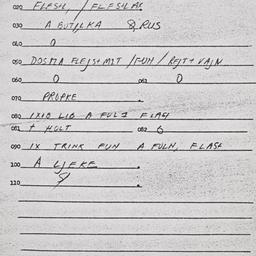 020 FLESH, / FLESH AS
030 A BUTYLKA & RUS
040 0
050 DOSMA FLEJSH MIT / FUN / REJT + VAJN
060 0 061 0
070 PROPKE
080 IXID LID A FULI FLASH
081 + HOLT 082 6
090 IX TRINK FUN A FULN, FLASH
100 A LJEKE
110